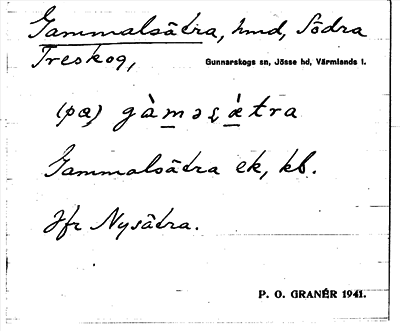 Gammalsätra, hmd, Södra
Treskog, Gunnarskogs sn, Jösse hd, Värmlands l.
(pœ) gàm̲əʂæ̲̀tra
Gammalsätra ek, kb.
Jfr Nysätra.
P. O. GRANÉR 1941.